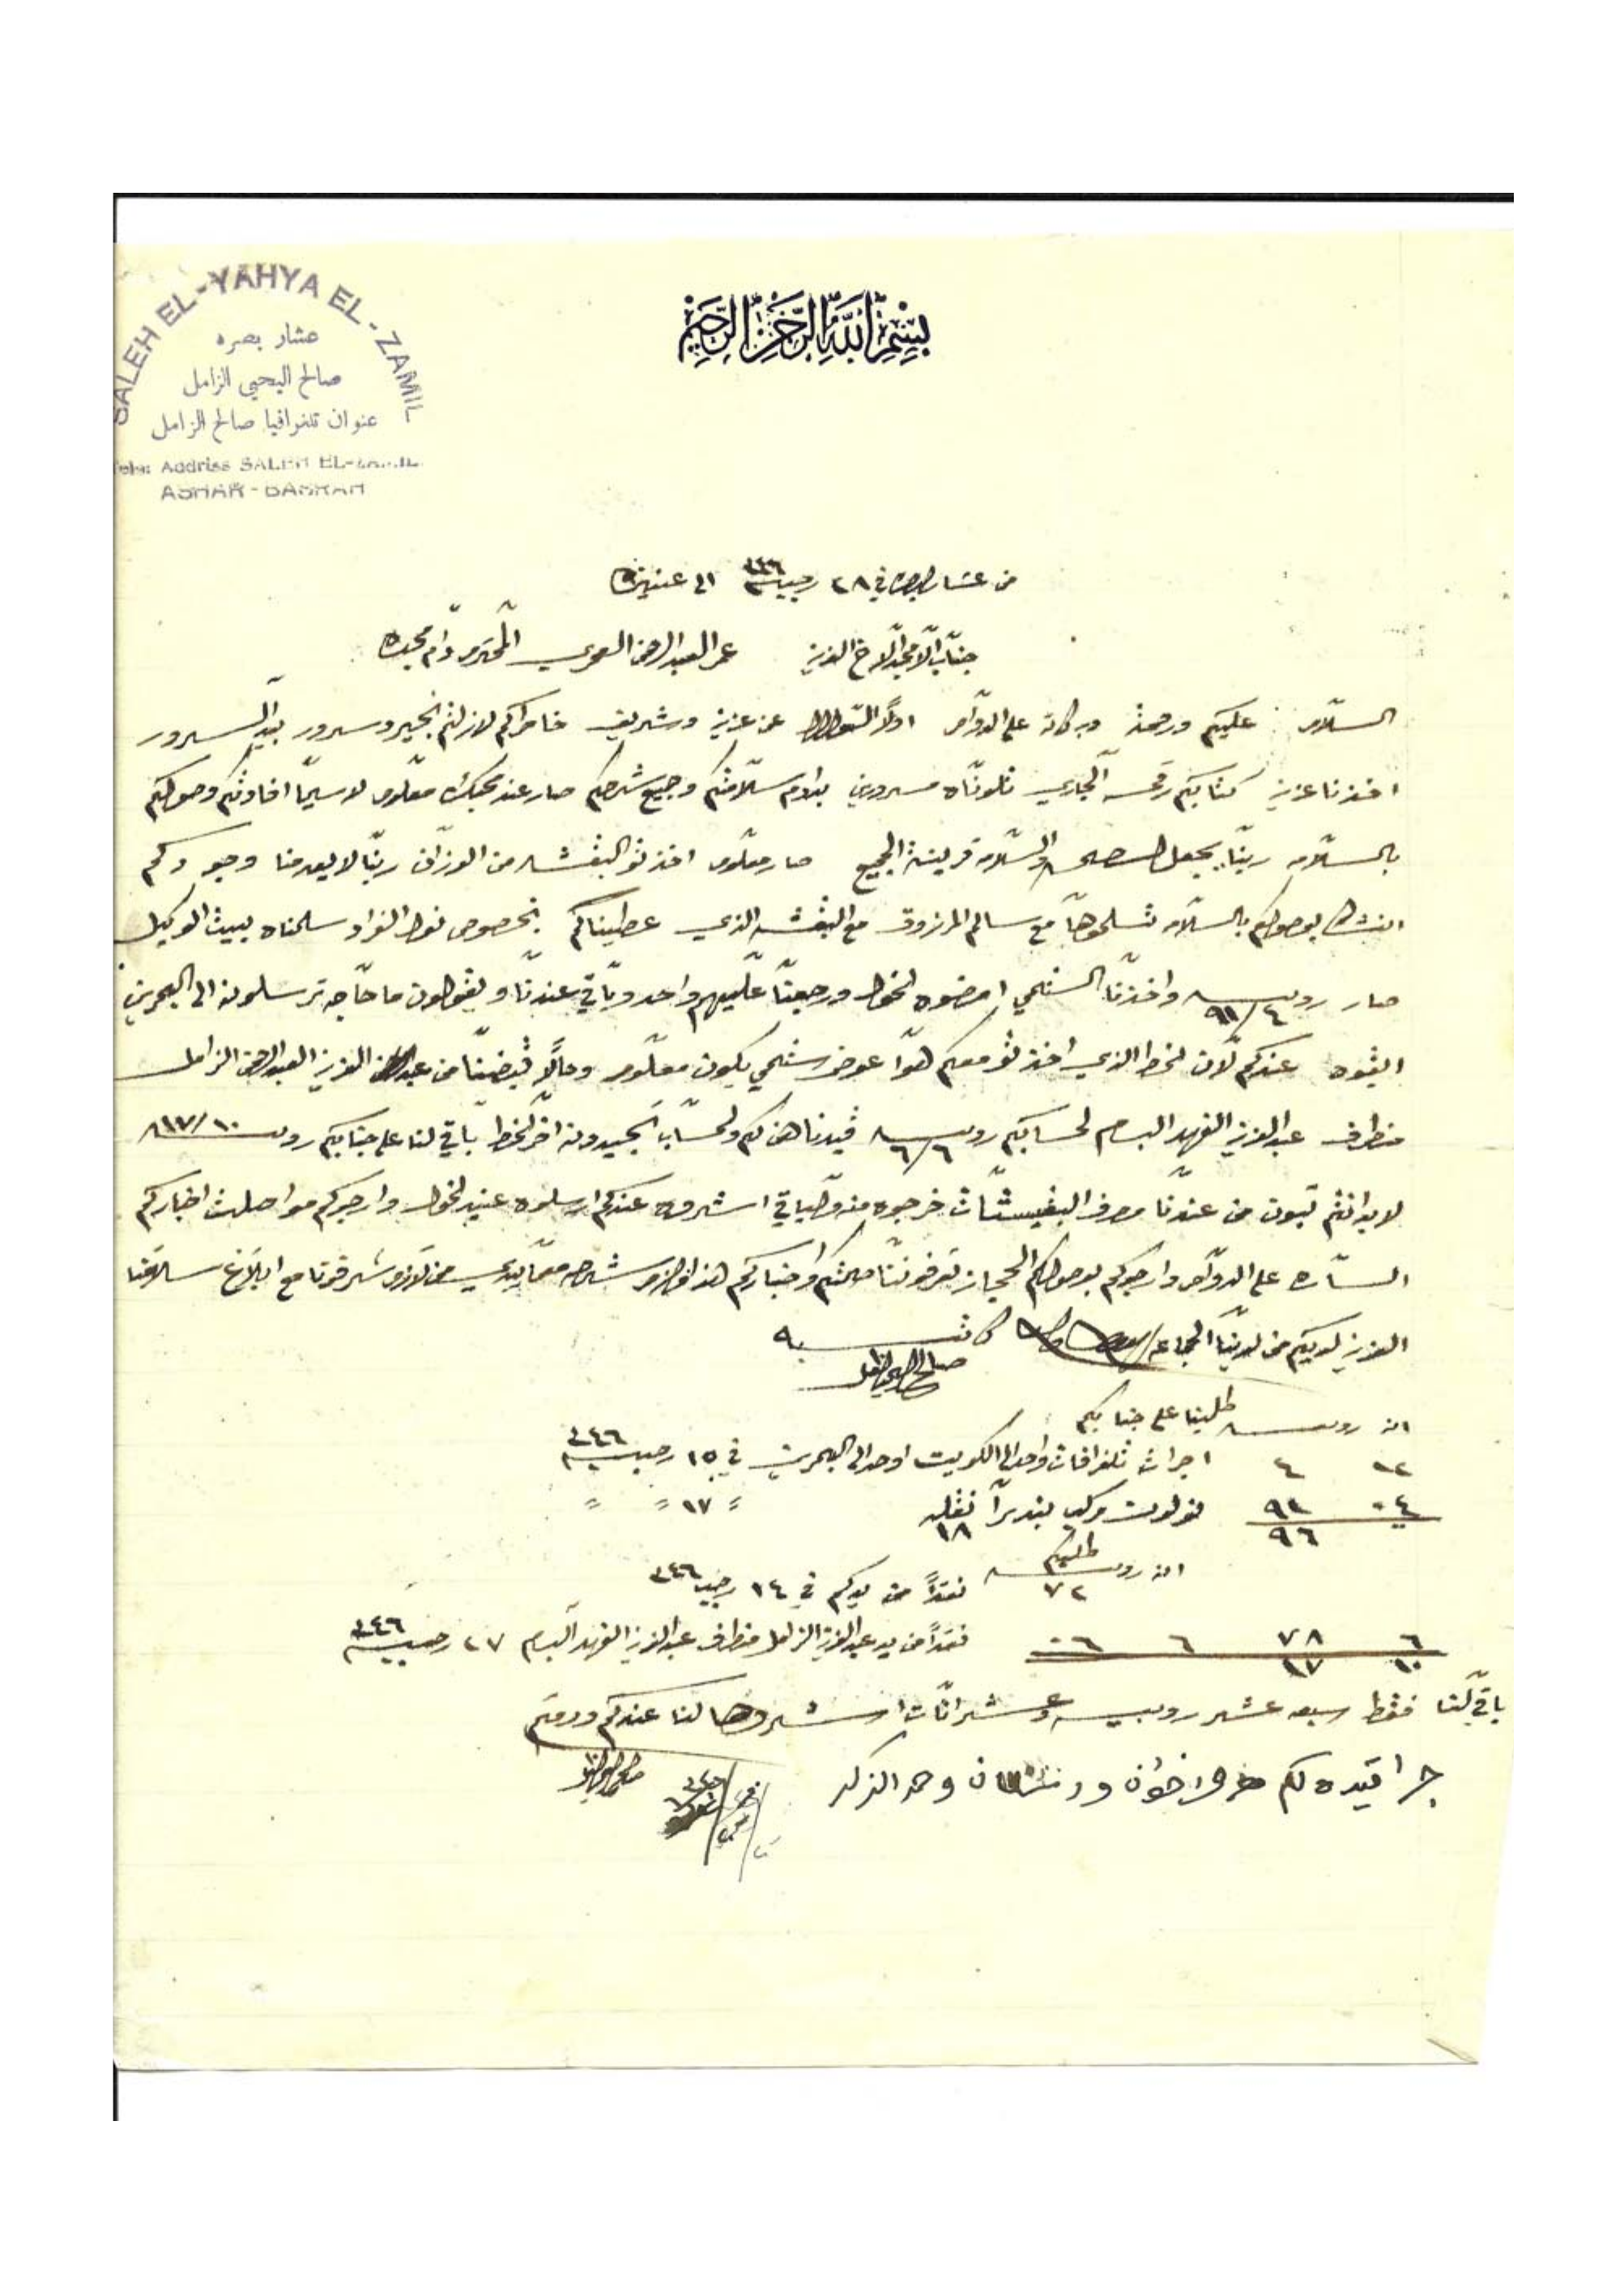 SALEH EL-YAHYA EL-ZAMIL
عشار بصره
صالح اليحيى الزامل
عنوان تلغرافيا صالح الزامل
Addriss SALEH EL-ZAMIL
ASHAR-BASRAH
بسم الله الرحمن الرحيم
من عشار البصره في ٢٨ رجب ١٣٤٦ الى عنيزه
جناب الامجد الاخ العزيز عمر العبدالرحمن العمري المحترم دام مجده
السلام عليكم ورحمة وبركاته على الدوام اولا السؤال عن عزيز وشريف خاطركم لازلتم بخير وسرور بيد السرور
اخذنا عزيز كتابكم رقمه الجاري تلوناه مسرورين بدوام سلامتكم وجميع شرحكم صار عند محبك معلوم لاسيما افادتكم وصولكم
بالسلامه ربنا يجعل الصحه والسلامه قرينة الجميع صار معلوم اخذتو البقشه من الوزان ربنا لا يعدمنا وجودكم
انشا بوصولكم بالسلامه تسلموها مع سالم المرزوق مع البقشه الذي عطيناكم بخصوص نول الغراد سلمناه ببيت الوكيل
صار روبيه ٩١/٤ واخذنا السنمي امضوه لخول ورجعنا عليهم واحد وباقي عندنا ويقولون ما حاجه ترسلونه الى البحرين
عندكم لان لخط الذي اخذتو معكم هوا عوض سنمي يكون معلوم وحالا قبضنا من عبد العزيز العبدالرحمن الزامل
منطرف عبدالعزيز الفهد البسام لحسابكم روبيه ٦/٦ قيدناهن لكم ولحساب تجدونه اخر لخط باقي لنا على جنابكم روبيه ١٧/١٠
لابد انتم تبون من عندنا مصرف خرجوه منه ولباقي اشروه عندكم ارسلوه عنيد لخول وارجوكم مواصلت اخباركم
الساره على الدوام وارجوكم بوصولكم الحجاز تعرفوننا صحتكم واخباركم هذا مالزم شرحه مع ابلاغ سلامنا
العزيز لديكم من لدينا الجماعه كاتبه
صالح اليحيى الزامل
انه روبيه طلبنا على جنابكم
١٢ ٤ اجرات تلغرافات واحد الى الكويت اوحد الى البحرين في ١٥ رجب ١٣٤٦
٠٤ ٩١ نولون مركب ١٧ " "
٩٦
انه روبيه طلبكم
٧٢ نقدا من يدكم في ١٤ رجب ١٣٤٦
٦ ٧٨ ٦ ٠٦ نقدا من يد عبدالعزيز الزامل منطرف عبدالعزيز الفهد البسام ٢٧ رجب ١٣٤٦
١٠ ١٧
باقي لنا فقط سبعه عشر روبيه وعشر انات اشروها لنا عندكم ودمتم
جرا قيده لكم
صالح اليحيى الزامل